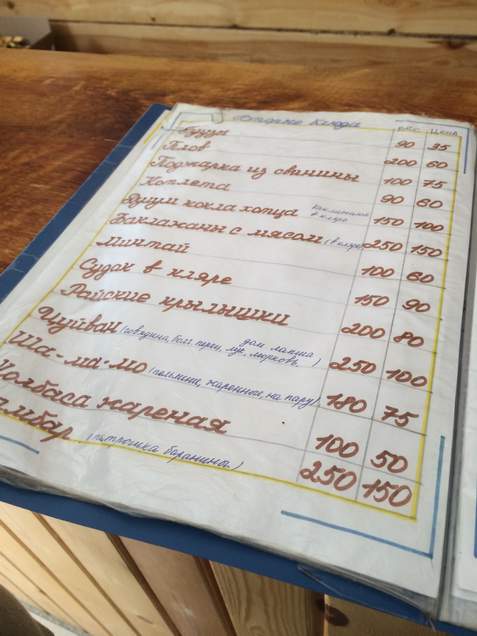 Вторые блюда вес Цена
Бузы 90 35
Плов 200 60
Поджарка из свинины 100 75
Котлета 90 60
Духум хокла хотца 150 100
Баклажаны с мясом 250 150
Минтай 100 60
Судок в кляре 150 90
Райские крылышки 200 80
Цуйван (говядина, бол. перец, лук, морковь, дом. лапша) 250 100
Ша-ма-мо (пельмени, жаренные, на пару) 180 75
Колбаса жареная 100 50
(петрошка баранина) 250 150